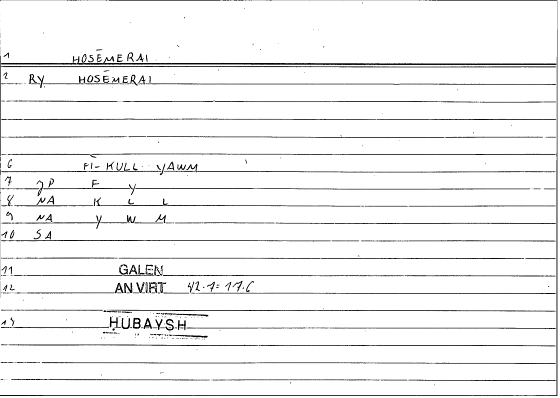 1 HOSĒMERAI
2 RY HOSĒMERAI
6 FĪ- KULL YAWM
7 JP F Y
8 NA K L L
9 NA Y W M
10 SA
11 GALEN
12 AN VIRT 42.7=17.6
13 ḤUBAYSH